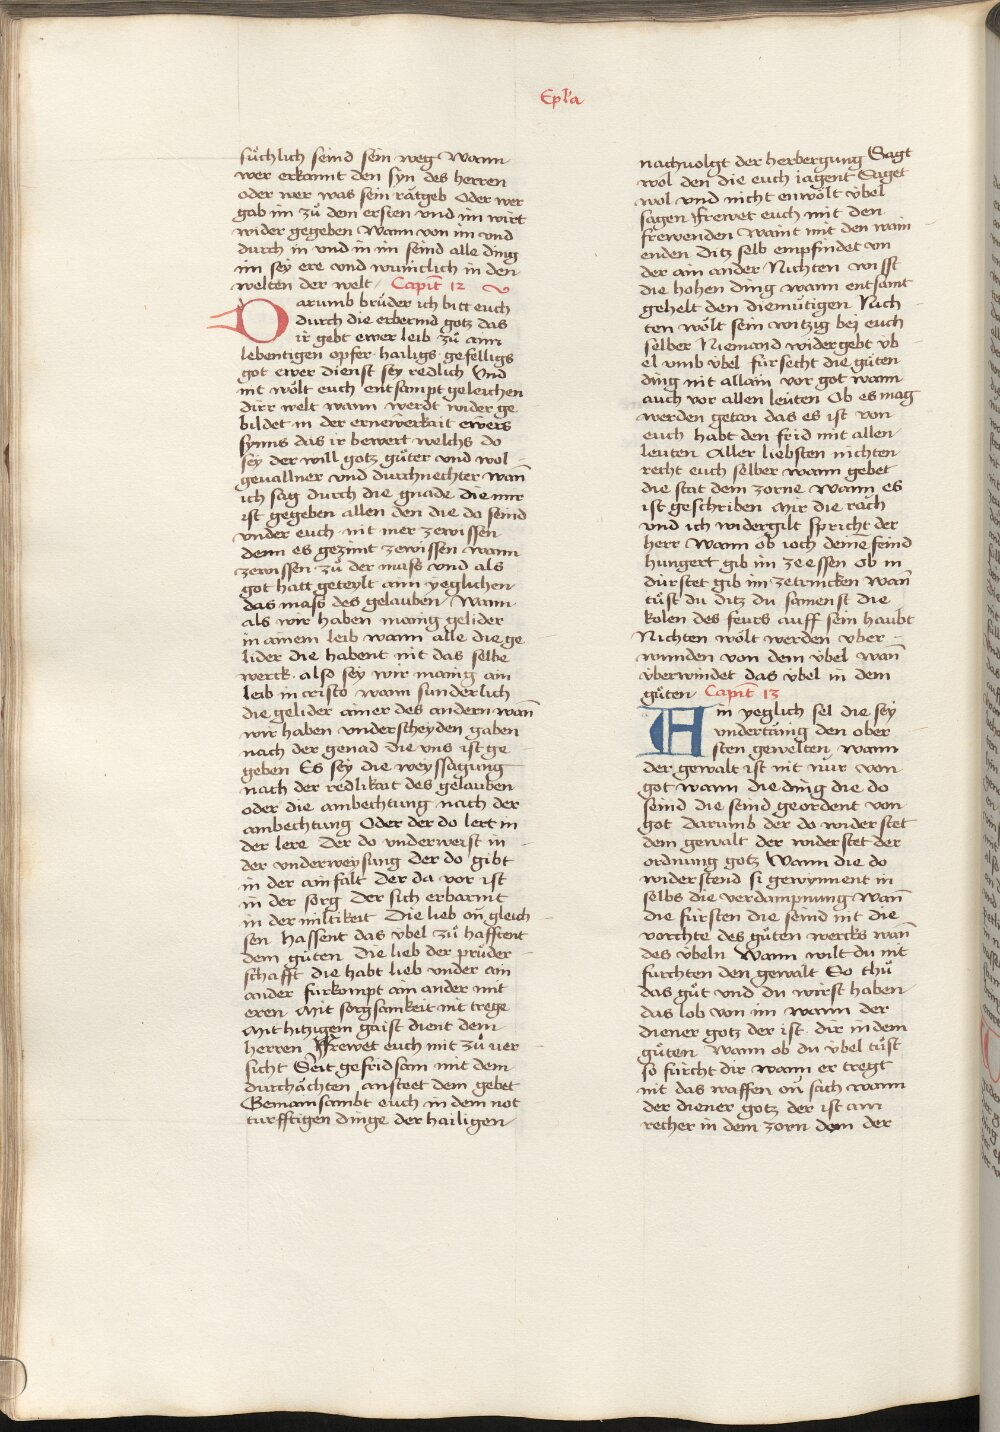 Epl'a
sůchlich seind sein weg Wann
wer erkannt den syn des herren
oder wer was sein rätgeb Oder wer
gab im zů dem ersten vnd im wirt
wider gegeben Wann von im vnd
durch in vnd in im seind alle ding
im sey ere vnd wunīclich in den
welten der welt / Capit̄ 12 v
Darumb brůder ich bitt euch
durch die erbermd gotz das
ir gebt ewer leib zů aim
lebentigen opfer · hailigs · gefelligs
got ewer dienst sey redlich Vnd
nit wölt euch entsampt geleichen
dirr welt wann werdt wider ge
bildet in der ernewerkait ewers
synns das ir bewert welchs do
sey der will gotz gůter vnd wol –
geuallner vnd durchnechter wan̄
ich sag durch die gnade die mir
ist gegeben allen den die do seind
vnder euch nit mer zewissen
denn es gezimt zewissen wann
zewissen zů der mass vnd als
got hatt geteylt aim yeglichen
das mass des gelauben / Wann
als wir haben manig gelider
in ainem leib wann alle die ge
lider die habent nit das selbe
werck · also sey wir manig ain
leib in cristo wann sunderlich
die gelider ainer des andern wan̄
wir haben vnderscheyden gaben
nach der genad die vns ist ge
geben Es sey die weyssagung
nach der redlikait des gelauben
oder die ambechtung nach der
ambechtung Oder der do lert in
der lere Der do vnderweist in –
der vnderweysung der do gibt
in der ainfalt Der da vor ist
in der sorg Der sich erbarmt
in der miltikeit Die lieb on̄ gleich –
sen Hassent das vbel zů hafftent
dem gůten Die lieb der prüder –
schafft die habt lieb vnder ain
ander fürkompt ain ander mit
eren Mit sorgsamkeit nit trege
Mit hitzigem gaist dient dem
herren Frewet euch mit zů ver
sicht Seit gefridsam mit dem
durchächten ansteet dem gebet
Gemainsambt euch in dem not
turfftigen dinge der hailigen
nachvolgt der herbergung Sagt
wol den die euch iagent Saget
wol vnd nicht enwölt vbel
sagen Frewet euch mit den
frewenden Waint mit den wain
enden Ditz selb empfindet vn
der ain ander Nichten wisst
die hohen ding wann entsamt
gehelt den diemütigen Nich
ten wölt sein witzig bej euch
selber Niemand widergebt vb
el vmb vbel fürsecht die gůten
ding nit allain vor got wann
auch vor allen leüten Ob es mag
werden getan das es ist von
euch habt den frid mit allen
leuten Aller liebsten nichten
recht euch selber wann gebet
die stat dem zorne Wann es
ist geschriben Mir die rach
vnd ich widergilt spricht der
herr Wann ob ioch deine feind
hungert gib im zeessen ob in
dürstet gib im zetrincken wan̄
tůst du ditz du samenst die
kolen des feurs auff sein haubt
Nichten wölt werden vber –
wunden von dem vbel wan̄
vberwindet das vbel in dem
gůten / Capit̄ 13
Ain yeglich sel die sey
vndertänig den ober
sten gewelten wann
der gewalt ist nit nůr von
got wann die ding die do
seind die seind geordent von
got Darumb der do widerstet
dem gewalt der widerstet der
ordnung gotz Wann die do
widerstend si gewynnent in
selbs die verdampnung wan̄
die fürsten die seind nit die
vorchte des gůten wercks wan̄
des vbeln Wann wilt du nit
fürchten den gewalt So thů
das gůt vnd du wirst haben
das lob von im wann der
diener gotz der ist dir in dem
gůten Wann ob du vbel tůst
so fürcht dir wann er tregt
nit das waffen on̄ sach wann
der diener gotz der ist am
recher in dem zorn dem der